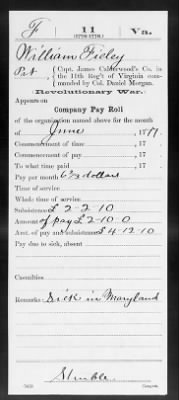 F 11 Va.
(1776-1778.)
William Fieley
Pvt, Capt. James Calderwood's Co. in
the 11th Reg't of Virginia com-
manded by Col. Daniel Morgan.
Revolutionary War.
Appears on
Company Pay Roll
of the organization named above for the month
of June, 1777.
Commencement of time , 17 .
Commencement of pay , 17 .
To what time paid , 17 .
Pay per month 6⅔ dollars
Time of service
Whole time of service
Subsistence £ 2-2-10
Amount of pay £ 2-10-0
Amt. of pay and subsistence £ 4-12-10
Pay due to sick, absent
Casualties
Remarks: Sick in Maryland
Copyist.